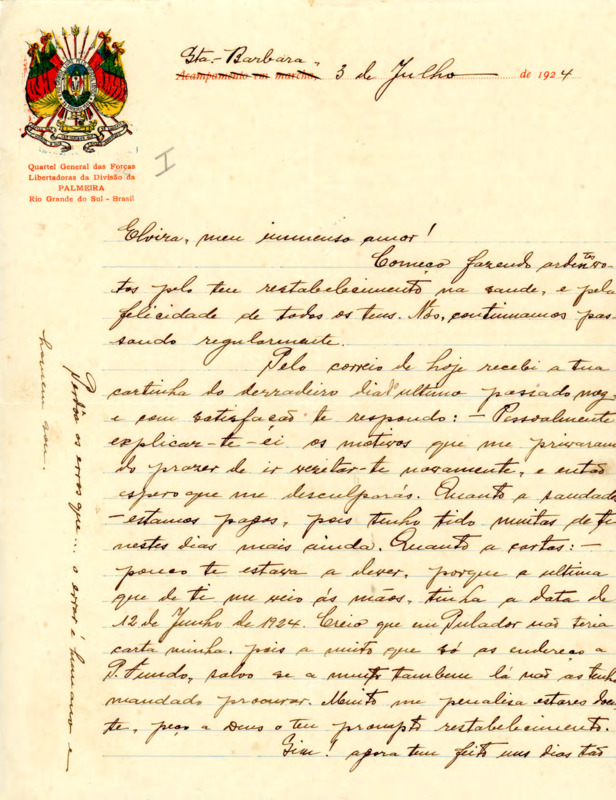 Sta.- Barbara,
Acampamento em marcha, 3 de Julho de 1924
Quartel General das Forças
Libertadoras da Divisão da
PALMEIRA
Rio Grande do Sul - Brasil
I
Elvira, meu immenso amor!
Começo fazendo ardentos vo-
tos pelo teu restabelecimento na saude, e pela
felicidade de todos os teus. Nós, continuamos pas-
sando regularmente.
Pelo correio de hoje recebi a tua
cartinha do derradeiro dia ultimo passado mez
e com satisfação te respondo: - Pessoalmente
explicar-te-éi os motivos que me privaram
do prazer de ir vizitar-te novamente, e então
espero que me desculparás. Quanto a saudade
- estamos pagos, pois tenho tido muitas de ti
nestes dias mais ainda. Quanto a cartas: -
pouco te estava a dever, porque a ultima
que de ti me veio ás mãos, tinha a data de
12 de Junho de 1924. Creio que em Pulador não teria
carta minha, pois a muito que só as endereço a
P. Fundo, salvo se a muito tambem lá não as tenha
mandado procurar. Muito me penalisa estares doen-
te, peço a Deus o teu prompto restabelecimento.
Sim! agora tem feito uns dias tão
Perdôa os erros que... o errar é humano e
homem sou.